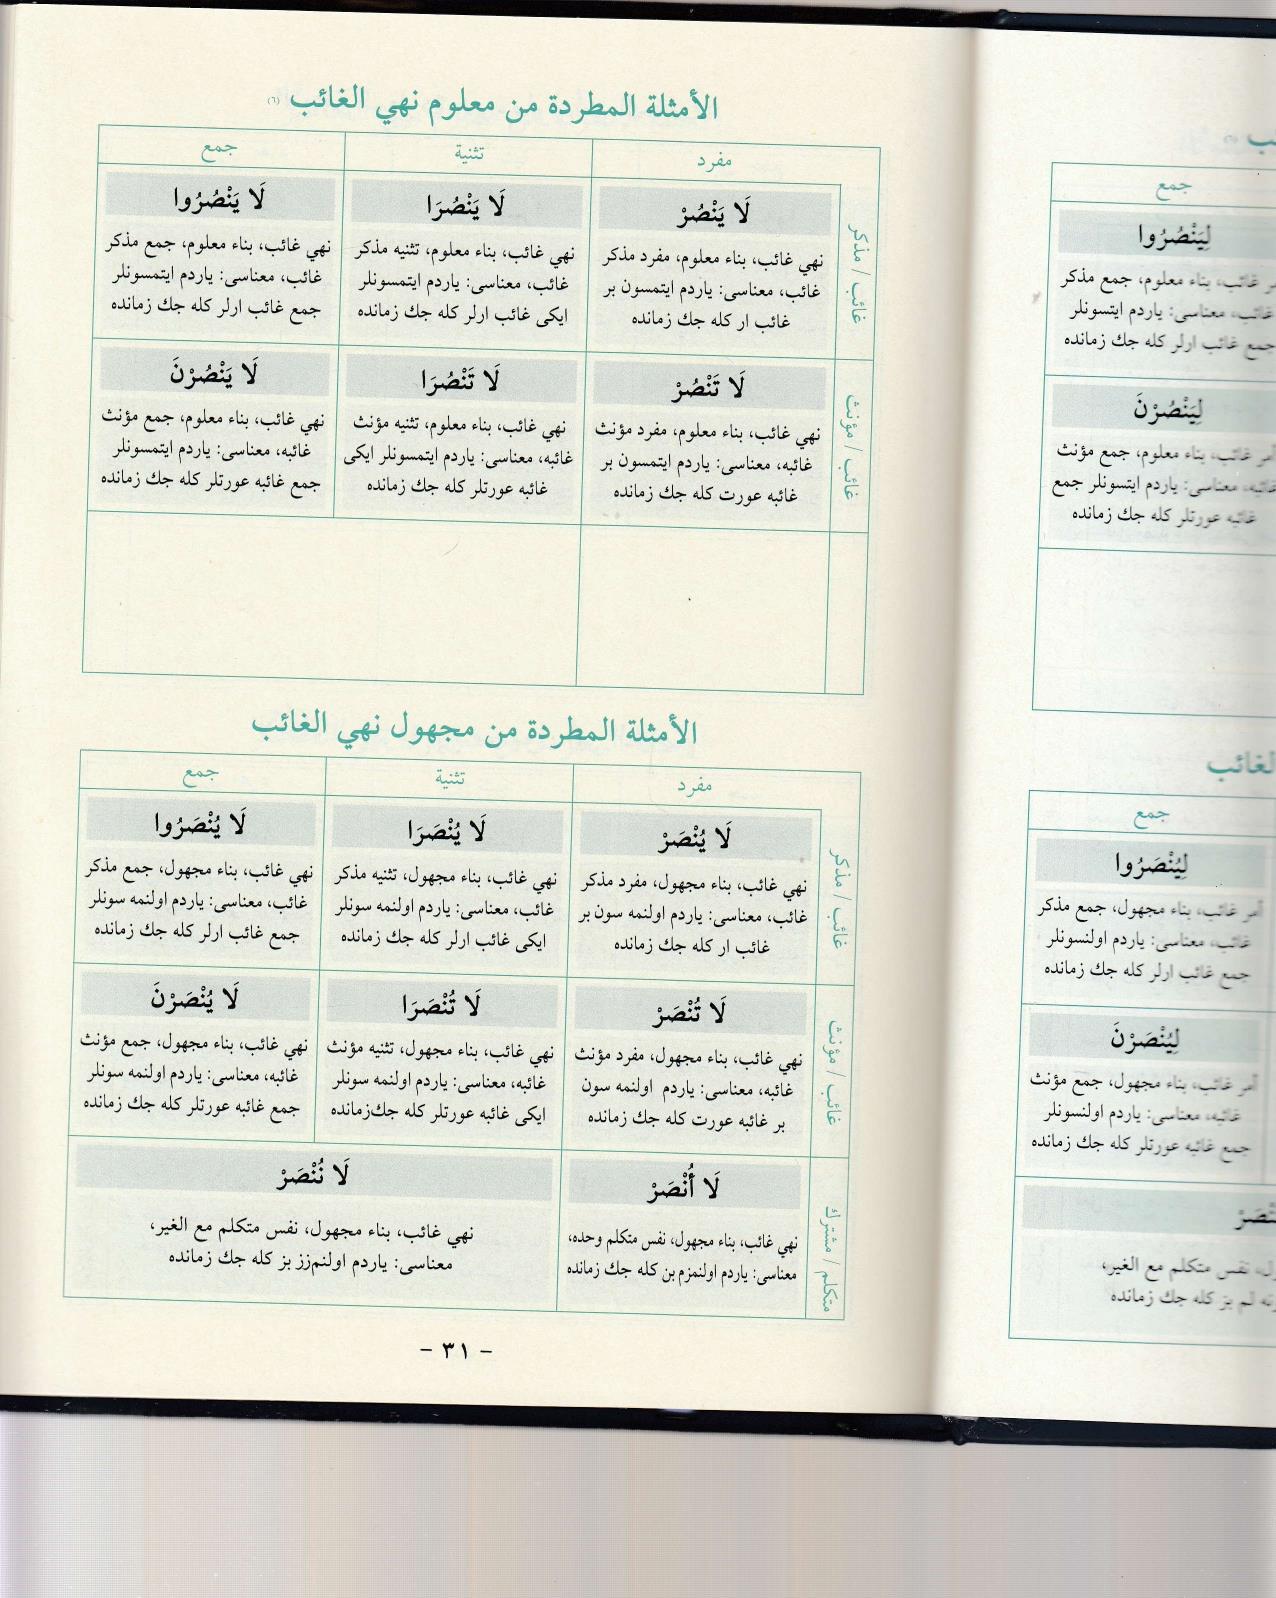 الأمثلة المطردة من معلوم نهي الغائب (٦)
مفرد تثنية جمع
غائب / مذكر
لَا يَنْصُرْ
نهي غائب، بناء معلوم، مفرد مذكر
غائب، معناسى: ياردم ايتمسون بر
غائب ار كله جك زمانده
لَا يَنْصُرَا
نهي غائب، بناء معلوم، تثنيه مذكر
غائب، معناسى: ياردم ايتمسونلر
ايكى غائب ارلر كله جك زمانده
لَا يَنْصُرُوا
نهي غائب، بناء معلوم، جمع مذكر
غائب، معناسى: ياردم ايتمسونلر
جمع غائب ارلر كله جك زمانده
غائب / مؤنث
لَا تَنْصُرْ
نهي غائب، بناء معلوم، مفرد مؤنث
غائبه، معناسى: ياردم ايتمسون بر
غائبه عورت كله جك زمانده
لَا تَنْصُرَا
نهي غائب، بناء معلوم، تثنيه مؤنث
غائبه، معناسى: ياردم ايتمسونلر ايكى
غائبه عورتلر كله جك زمانده
لَا يَنْصُرْنَ
نهي غائب، بناء معلوم، جمع مؤنث
غائبه، معناسى: ياردم ايتمسونلر
جمع غائبه عورتلر كله جك زمانده
الأمثلة المطردة من مجهول نهي الغائب
مفرد تثنية جمع
غائب / مذكر
لَا يُنْصَرْ
نهي غائب، بناء مجهول، مفرد مذكر
غائب، معناسى: ياردم اولنمه سون بر
غائب ار كله جك زمانده
لَا يُنْصَرَا
نهي غائب، بناء مجهول، تثنيه مذكر
غائب، معناسى: ياردم اولنمه سونلر
ايكى غائب ارلر كله جك زمانده
لَا يُنْصَرُوا
نهي غائب، بناء مجهول، جمع مذكر
غائب، معناسى: ياردم اولنمه سونلر
جمع غائب ارلر كله جك زمانده
غائب / مؤنث
لَا تُنْصَرْ
نهي غائب، بناء مجهول، مفرد مؤنث
غائبه، معناسى: ياردم اولنمه سون
بر غائبه عورت كله جك زمانده
لَا تُنْصَرَا
نهي غائب، بناء مجهول، تثنيه مؤنث
غائبه، معناسى: ياردم اولنمه سونلر
ايكى غائبه عورتلر كله جك‌زمانده
لَا يُنْصَرْنَ
نهي غائب، بناء مجهول، جمع مؤنث
غائبه، معناسى: ياردم اولنمه سونلر
جمع غائبه عورتلر كله جك زمانده
متكلم / مشترك
لَا أُنْصَرْ
نهي غائب، بناء مجهول، نفس متكلم وحده،
معناسى: ياردم اولنمزم بن كله جك زمانده
لَا نُنْصَرْ
نهي غائب، بناء مجهول، نفس متكلم مع الغير،
معناسى: ياردم اولنم‌زز بز كله جك زمانده
- ٣١ -
جمع
لِيَنْصُرُوا
غائب، بناء معلوم، جمع مذكر
غائب، معناسى: ياردم ايتسونلر
جمع غائب ارلر كله جك زمانده
لِيَنْصُرْنَ
أمر غائب، بناء معلوم، جمع مؤنث
غائبه، معناسى: ياردم ايتسونلر جمع
غائبه عورتلر كله جك زمانده
الغائب
جمع
لِيُنْصَرُوا
أمر غائب، بناء مجهول، جمع مذكر
غائب، معناسى: ياردم اولنسونلر
جمع غائب ارلر كله جك زمانده
لِيُنْصَرْنَ
أمر غائب، بناء مجهول، جمع مؤنث
غائبه، معناسى: ياردم اولنسونلر
جمع غائبه عورتلر كله جك زمانده
نفس متكلم مع الغير،
بز كله جك زمانده